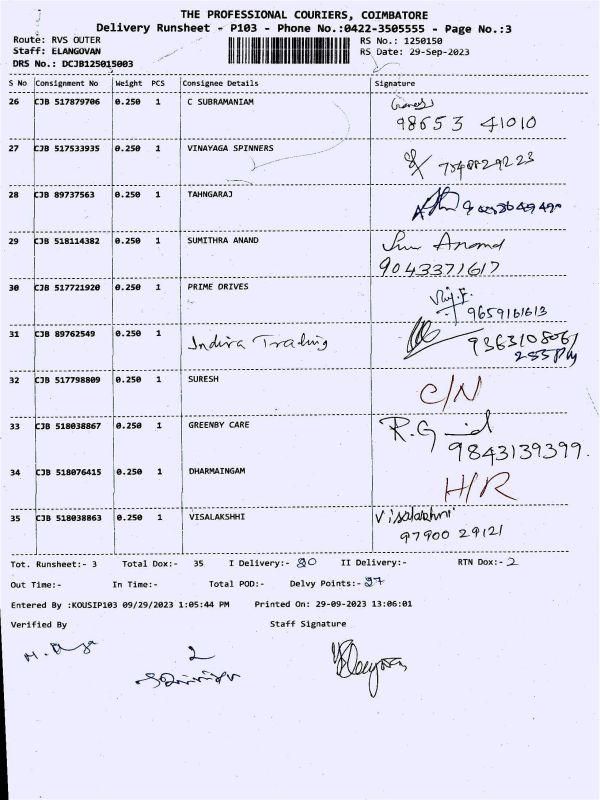 THE PROFESSIONAL COURIERS, COIMBATORE
Delivery Runsheet - P103 - Phone No.:0422-3505555 - Page No.:3
Route: RVS OUTER RS No.: 1250150
Staff: ELANGOVAN RS Date: 29-Sep-2023
DRS No.: DCJB125015003
S No Consignment No Weight PCS Consignee Details Signature
26 CJB 517879706 0.250 1 C SUBRAMANIAM
98653 41010
27 CJB 517533935 0.250 1 VINAYAGA SPINNERS
28 CJB 89737563 0.250 1 TAHNGARAJ
29 CJB 518114382 0.250 1 SUMITHRA ANAND Anand
9043371617
30 CJB 517721920 0.250 1 PRIME DRIVES
9659161613
31 CJB 89762549 0.250 1 Indira Trading
32 CJB 517798809 0.250 1 SURESH C/N
33 CJB 518038867 0.250 1 GREENBY CARE
9843139399.
34 CJB 518076415 0.250 1 DHARMAINGAM H/R
35 CJB 518038863 0.250 1 VISALAKSHHI
97900 29121
Tot. Runsheet:- 3 Total Dox:- 35 I Delivery:- II Delivery:- RTN Dox:- 2
Out Time:- In Time:- Total POD:- Delvy Points:- 27
Entered By :KOUSIP103 09/29/2023 1:05:44 PM Printed On: 29-09-2023 13:06:01
Verified By Staff Signature